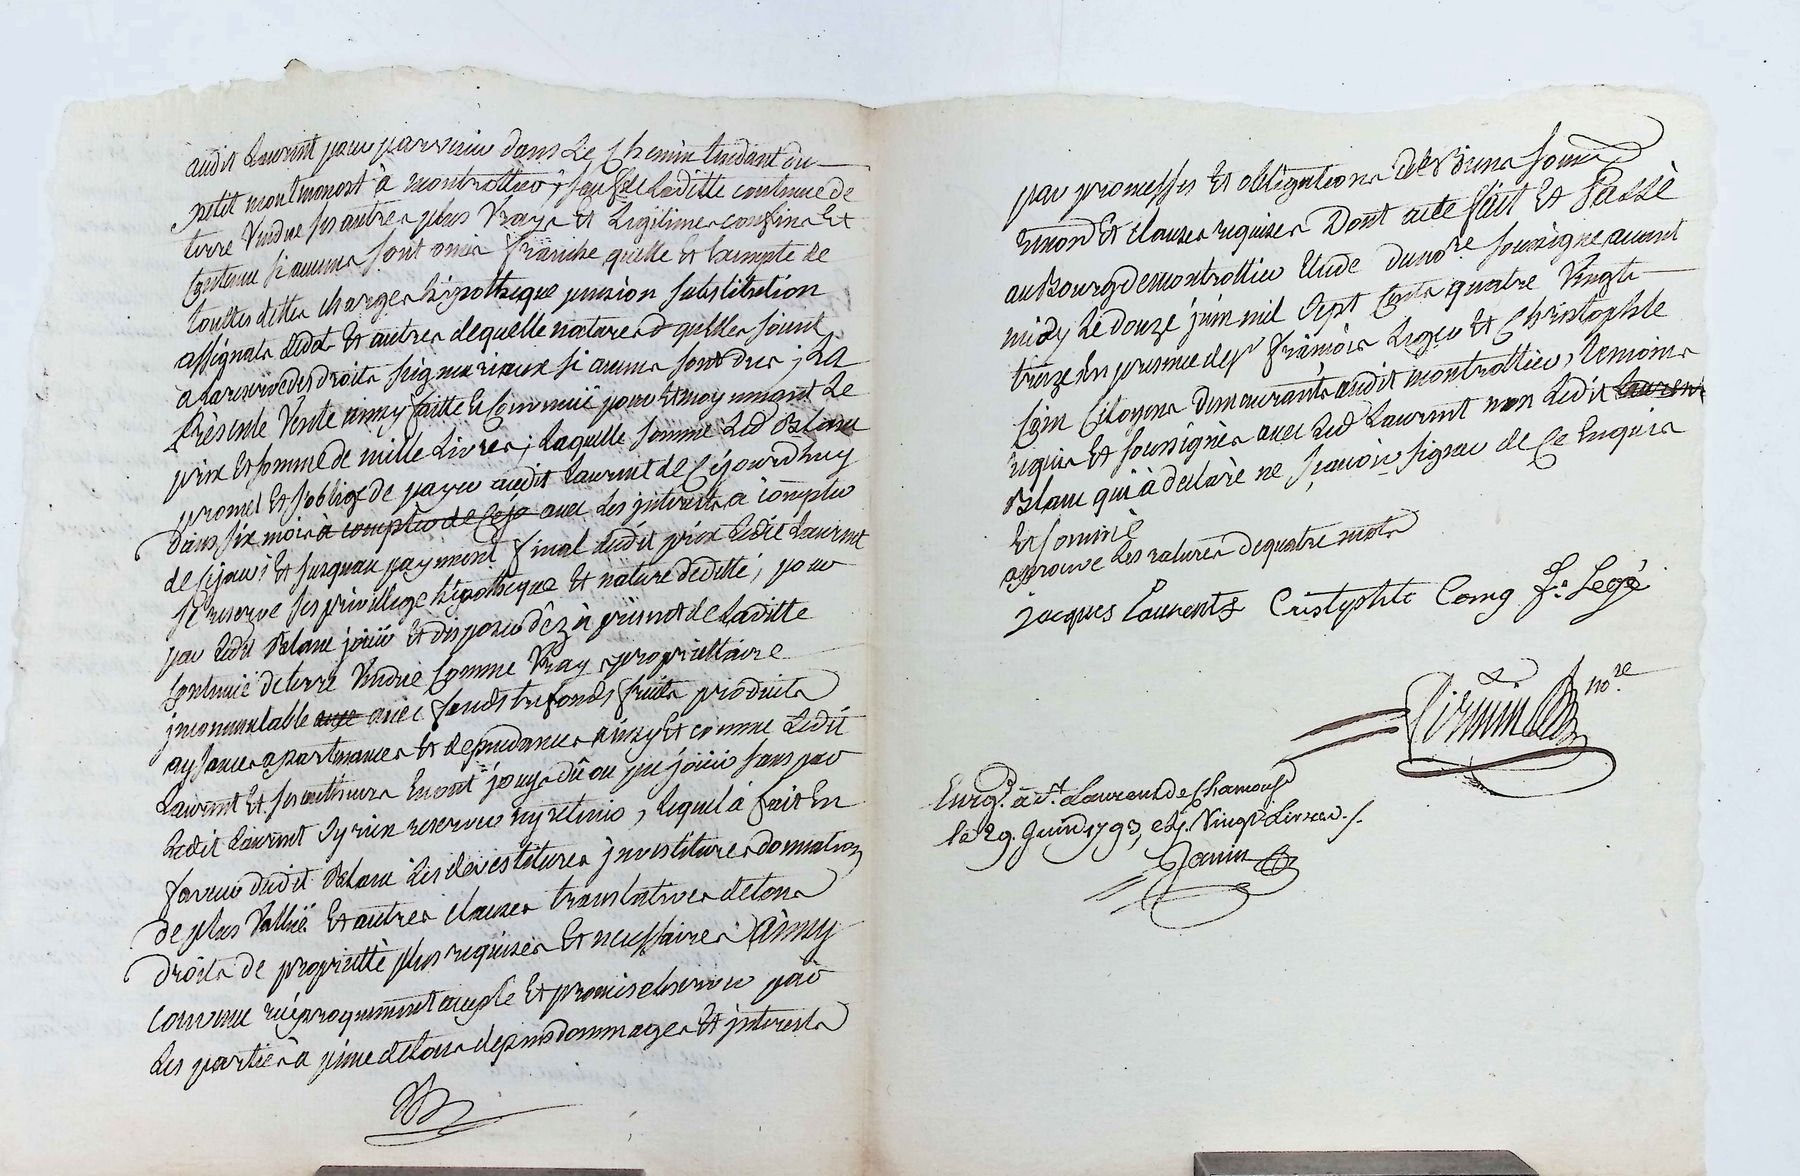 audit Laurent pour parvenir dans Le Chemin tendant du
petit montmonost à montrottier, sauf de Laditte contenue de
terre Vendue ses autres plus Vrays et Legitimes confins Et
Contenue si aucuns sont omis franche quelle Et Exempte de
touttes dettes charges hipotheque pension substitution
assignats dedot Et autres dequelle nature quelles soint
alareserve des droits seigneuriaux si aucuns sont dus ; La
Présente Vente ainsy faitte Et Convenuë pour Et moyennant Le
prix Et somme de mille Livres ; Laquelle somme Led Blanc
promet Et soblige de payer audit Laurent de Cejourdhuy
dans six mois a compter de Cejo avec Les interests a compter
de Cejour Et jusquau payement final dudit prix Ledit Laurent
se reserve ses privillege hipotheque Et nature deditte, pour
par Ledit Blanc jouir Et disposer dêz à présent de Laditte
Contenuë deterre Venduë Comme Vray proprietaire
jncommutable avec avec fonds trefonds fruits produits
aysances apartenances Et dependances ainsy Et comme Ledit
Laurent Et ses autheurs En ont jouy dû ou pu jouir sans par
Ledit Laurent Sy rien reserver ny retenir, Lequel à fait En
faveur dudit Blanc Les devestitures jnvestitures donnation
De plus Valluë Et autres clauses translatives detous
Droits de proprietté plus requises Et necessaires ainsy
Convenu reciproquement accepté Et promis observer par
Les parties à peine detous depens dommages Et jnterests
par promesses Et obligations Deb d'une soumis
renon Et clauses requises Dont acte fait Et Passè
au Bourg demontrottier Etude dunore soussigne avant
midy Le douze juin mil sept Cents quatre Vingt
treize En presence de sr francois Leger Et Christophle
Coin Citoyens demeurants audit montrottier, temoins
requis Et soussignès avec Led Laurent non Ledit Laurent
Blanc qui à declarè ne sçavoir signer de Ce Enquis
Et sommè
aprouve Les ratures dequatre mots
jacques Laurent Cristophle Coing f. Legé
nore
Enregt. à st. Laurent de Chamousst
le 29. Juin 1793, R. Vingt Livres./.